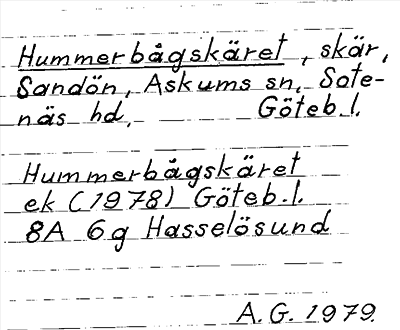 Hummerbågskäret, skär,
Sandön, Askums sn, Sote-
näs hd, Göteb.l.
Hummerbågskäret
ek (1978) Göteb.l.
8A 6g Hasselösund
A.G. 1979.